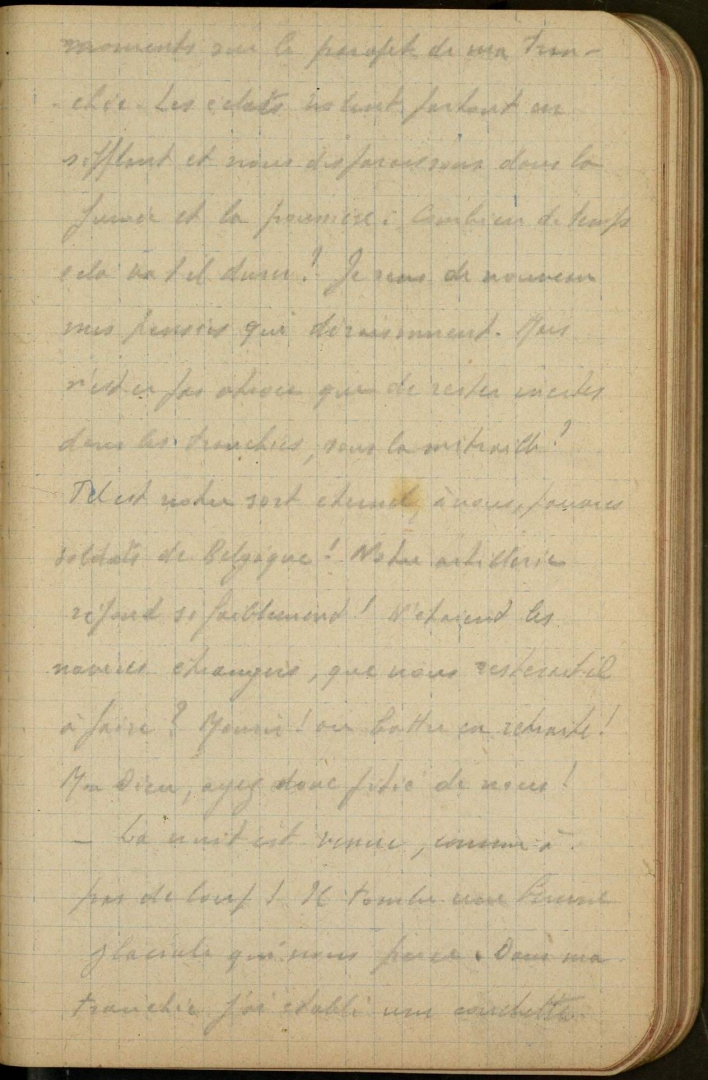 moments sur le parapet de ma tran-
chée. Les éclats volent partout en
sifflant et nous disparaissons dans la
fumée et la poussière. Combien de temps
cela va t il durer? Je sens de nouveau
mes pensées qui déraisonnent. Mais
n'est ce pas atroce que de rester inertes
dans les tranchées, sous la mitraille?
Tel est notre sort éternel, à nous, pauvres
soldats de Belgique! Notre artillerie
répond si faiblement! N'étaient les
navires étrangers, que nous resterait il
à faire? Mourir! ou battre en retraite!
Mon Dieu, ayez donc pitié de nous!
– La nuit est venue, comme à
pas de loup! Il tombe une bruine
glaciale qui nous perce. Dans ma
tranchée j'ai établi une couchette